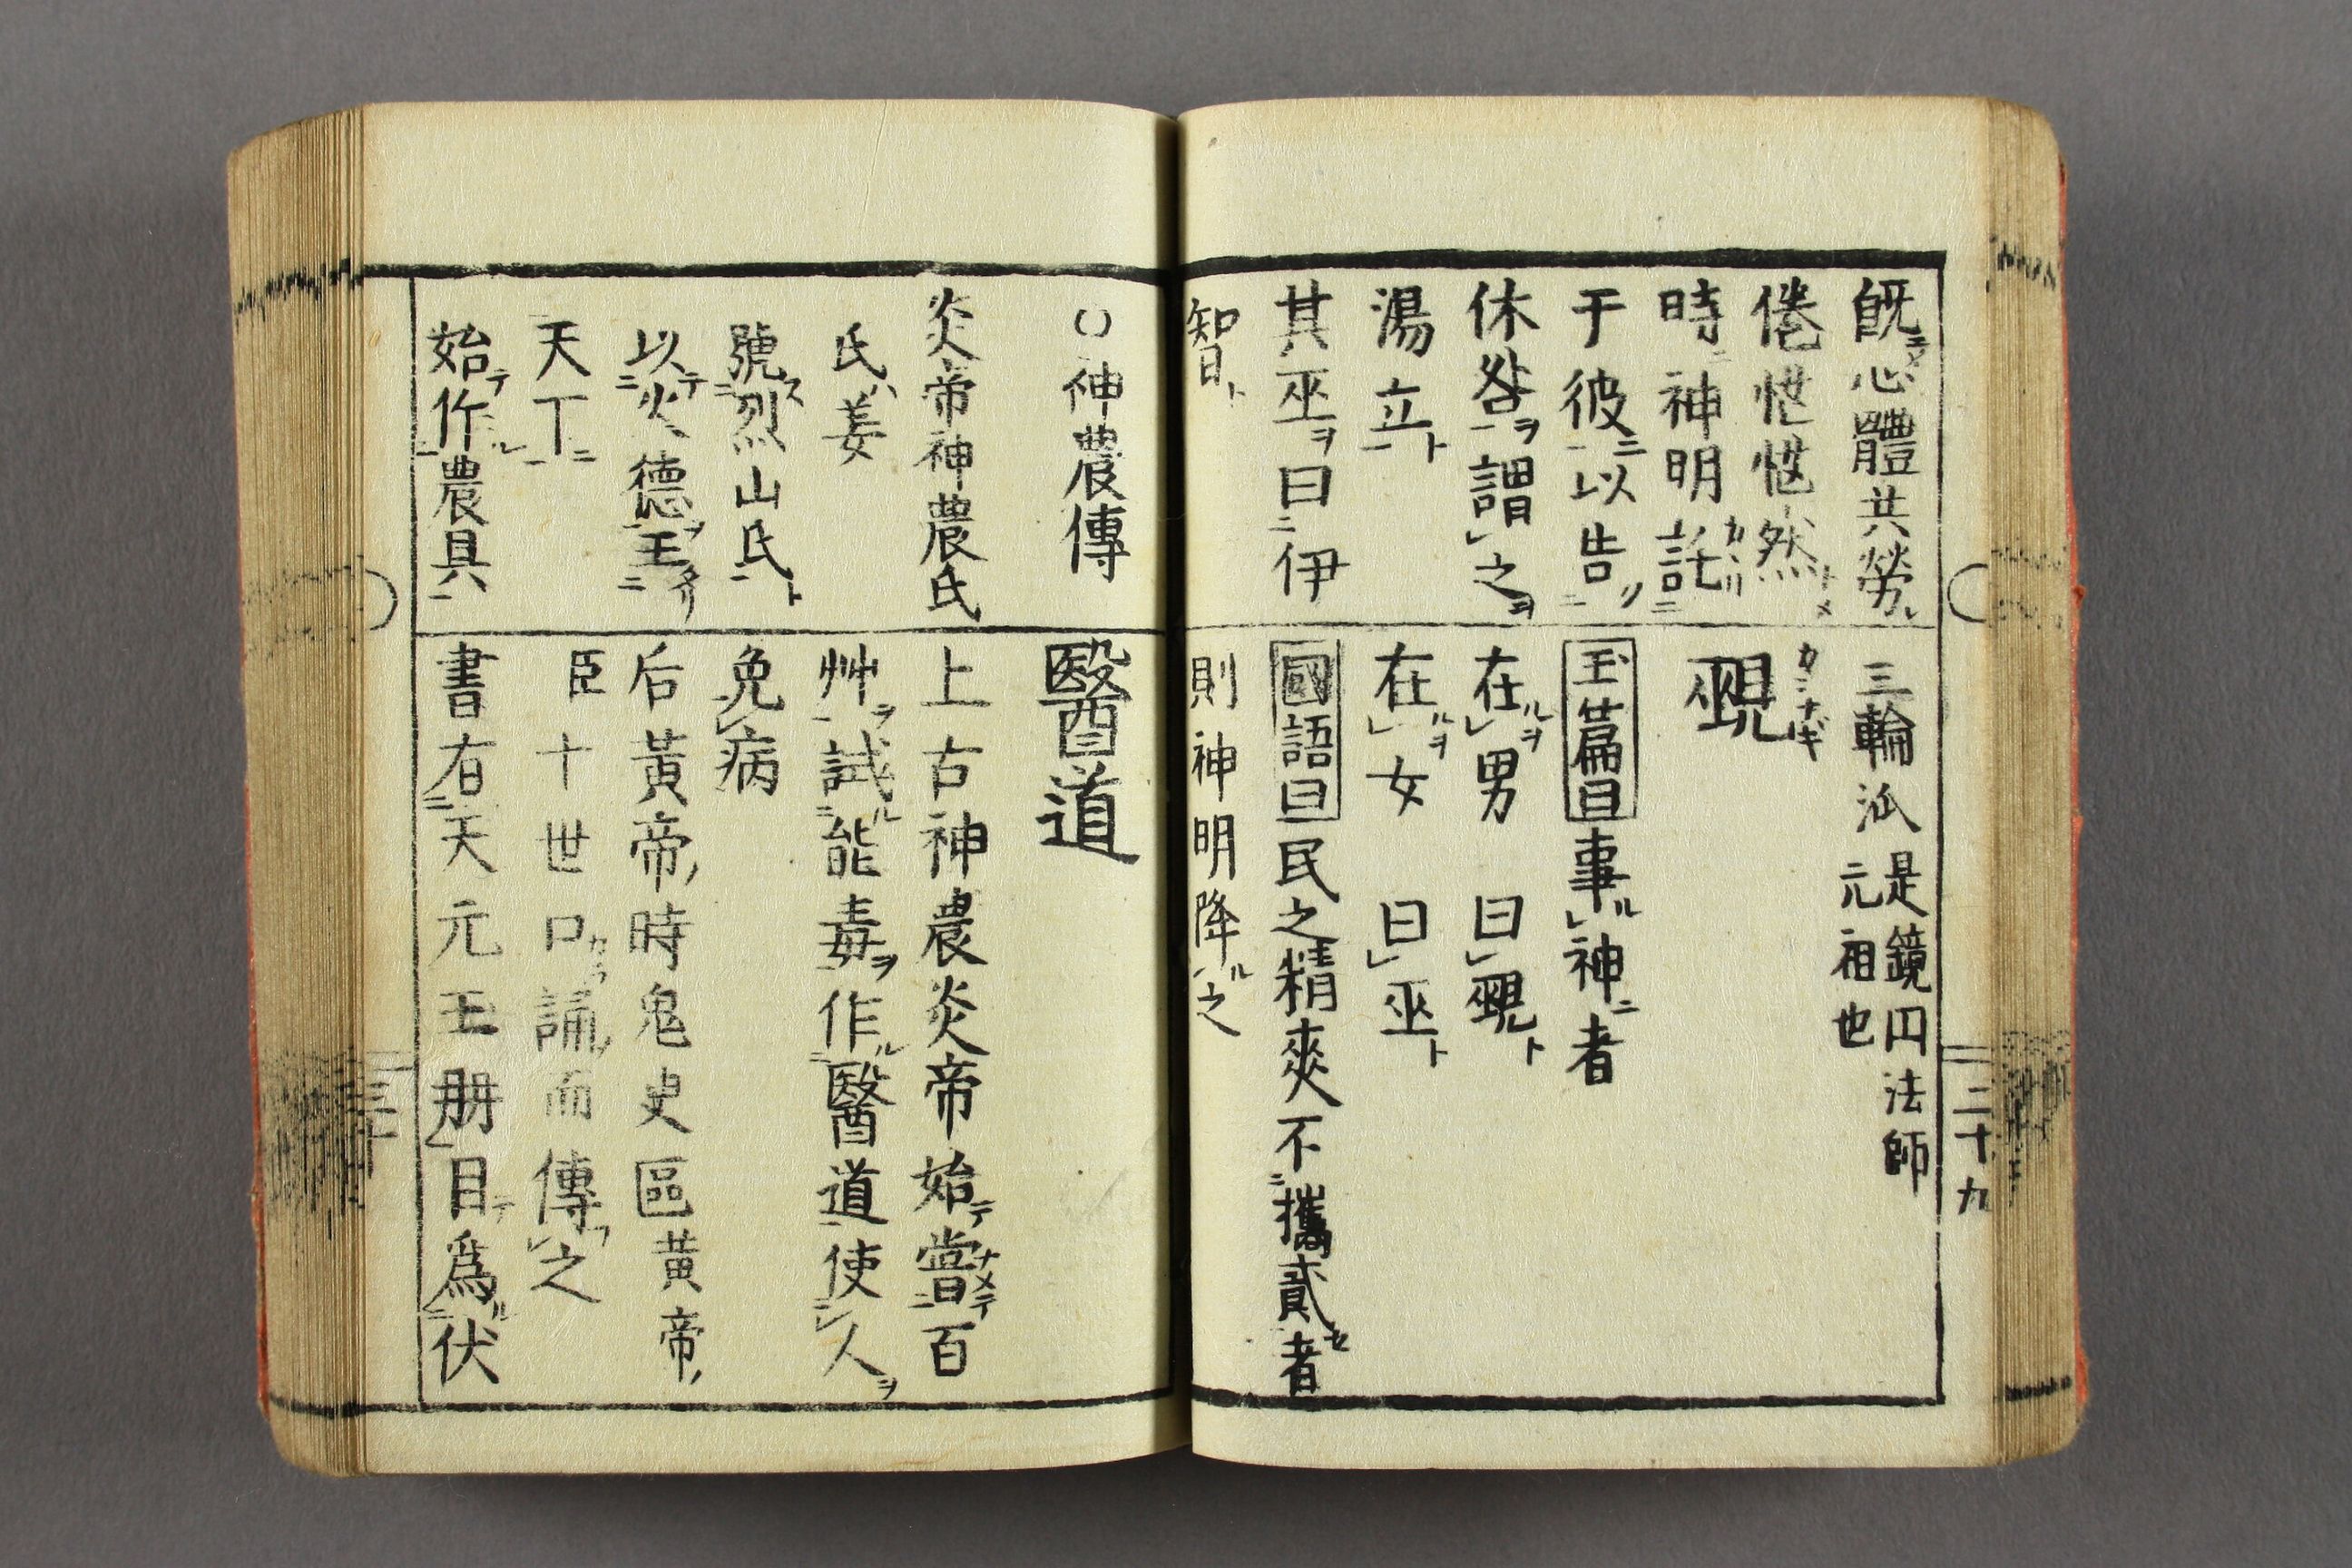 既心體共勞
倦惓惓然
時神明託
于彼以告
休咎謂之
湯立
其巫曰伊
智
三輪流是鏡円法師
元祖也
覡カンナギ
玉篇曰事神者
在男曰覡
在女曰巫
國語曰民之精爽不攜貳者
則神明降之
二十九
○神農傳
炎帝神農氏
氏姜
號烈山氏
以火德王
天下
始作農具
醫道
上古神農炎帝始嘗百
艸試能毒作醫道使人
免病
后黃帝時鬼臾區黃帝
臣十世口誦而傳之
書有天元玉册目爲伏